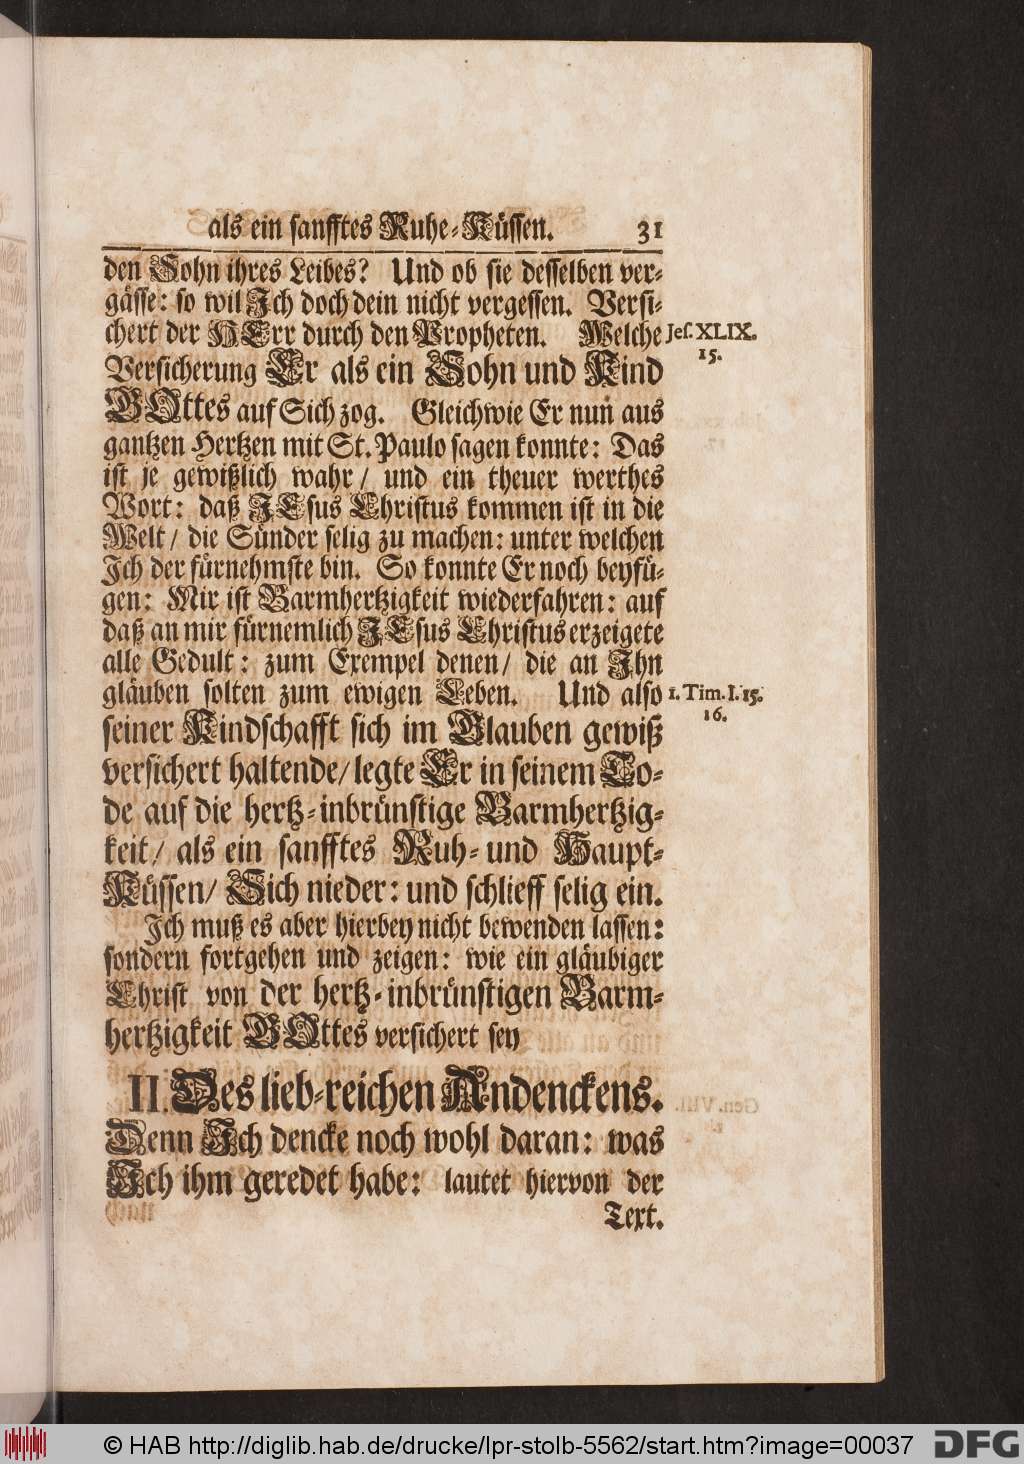 als ein sanfftes Ruhe-Küssen. 31
den Sohn ihres Leibes? Und ob sie desselben ver-
gässe: so wil Ich doch dein nicht vergessen. Versi-
chert der HErr durch den Propheten. Welche
Jes. XLIX.
15.
Versicherung Er als ein Sohn und Kind
GOttes auf Sich zog. Gleichwie Er nun aus
gantzen Hertzen mit St. Paulo sagen konnte: Das
ist je gewißlich wahr/ und ein theuer werthes
Wort: daß JEsus Christus kommen ist in die
Welt/ die Sünder selig zu machen: unter welchen
Ich der fürnehmste bin. So konnte Er noch beyfü-
gen: Mir ist Barmhertzigkeit wiederfahren: auf
daß an mir fürnemlich JEsus Christus erzeigete
alle Gedult: zum Exempel denen/ die an Ihn
gläuben solten zum ewigen Leben. Und also
1. Tim. I. 15.
16.
seiner Kindschafft sich im Glauben gewiß
versichert haltende/ legte Er in seinem To-
de auf die hertz-inbrünstige Barmhertzig-
keit/ als ein sanfftes Ruh- und Haupt-
Küssen/ Sich nieder: und schlieff selig ein.
Ich muß es aber hierbey nicht bewenden lassen:
sondern fortgehen und zeigen: wie ein gläubiger
Christ von der hertz-inbrünstigen Barm-
hertzigkeit GOttes versichert sey
II. Des lieb-reichen Andenckens.
Denn Ich dencke noch wohl daran: was
Ich ihm geredet habe: lautet hiervon der
Text.
© HAB http://diglib.hab.de/drucke/lpr-stolb-5562/start.htm?image=00037
DFG